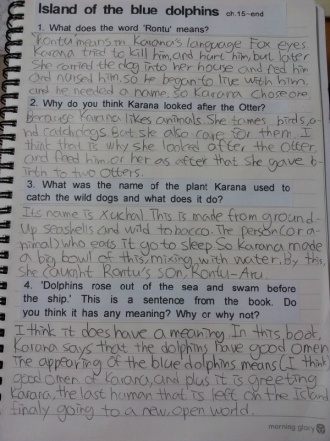 Island of the blue dolphins ch.15-end
1. What does the word 'Rontu' means?
Rontu means in Karana's language Fox eyes.
Karana tried to kill him, and hurt him, but later
She carried the dog into her house and fed him
and nursed him, so he began to live with him.
and he needed a name, so Karana chose one.
2. Why do you think Karana looked after the Otter?
Because Karana likes animals. She tames birds, a-
nd catch dogs. But she also care for them. I
think that is why she looked after the otter.
and feed him or her as after that she gave b-
irth to two otters.
3. What was the name of the plant Karana used to
catch the wild dogs and what does it do?
Its name is Xuchal. This is made from ground-
up seashells and wild tobacco. The person (or a-
nimal) who eats it go to sleep. So Karana made
a big bowl of this, mixing with water. By this,
she caught Rontu's son, Rontu-Aru.
4. 'Dolphins rose out of the sea and swam before
the ship.' This is a sentence from the book. Do
you think it has any meaning? Why or why not?
I think it does have a meaning. In this, book,
Karana says that the dolphins have good omen.
The appearing of the blue dolphins means (I think)
good omen of Karana, and plus it is greeting
Karana, the last human that is left on the Island
finaly going to a new open world.
morning glory